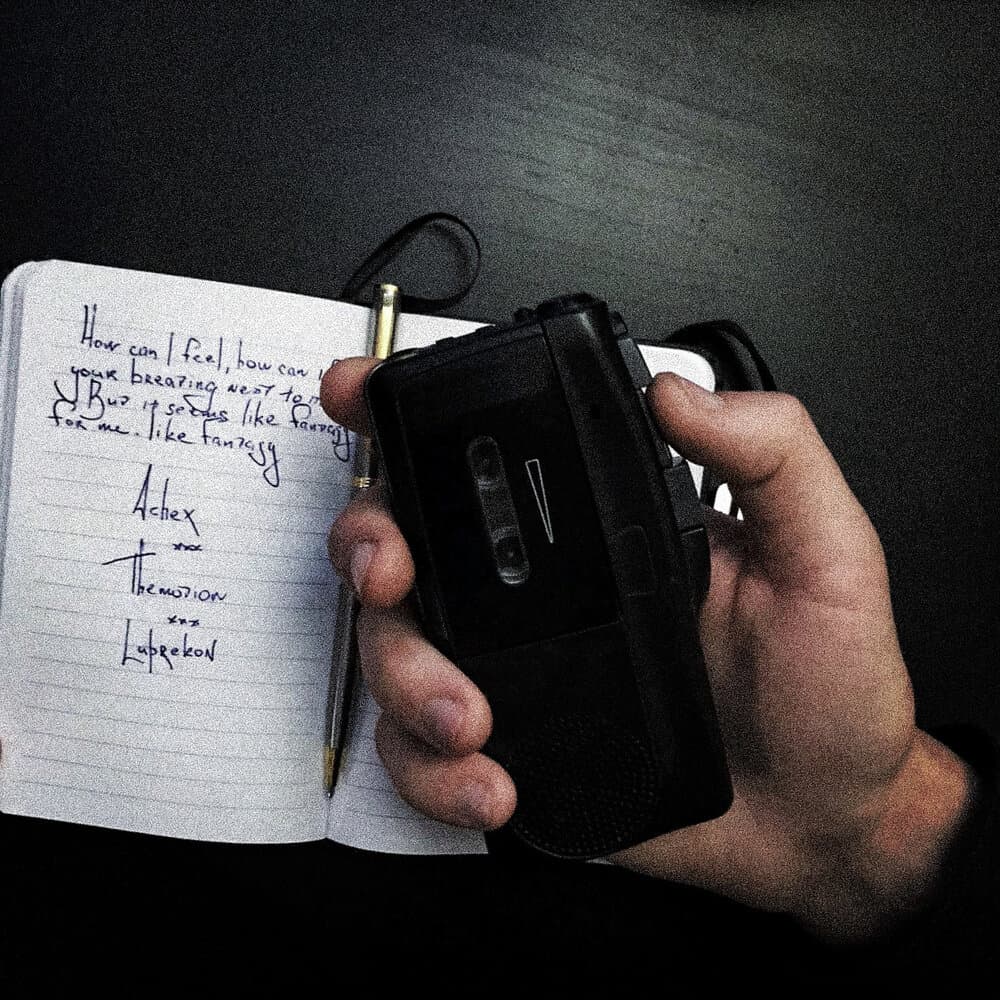 How can I feel, how can I
your breazing next to m
But it seems like fantasy
for me. like fantasy
Achex
xxx
Themotion
xxx
Luprekon